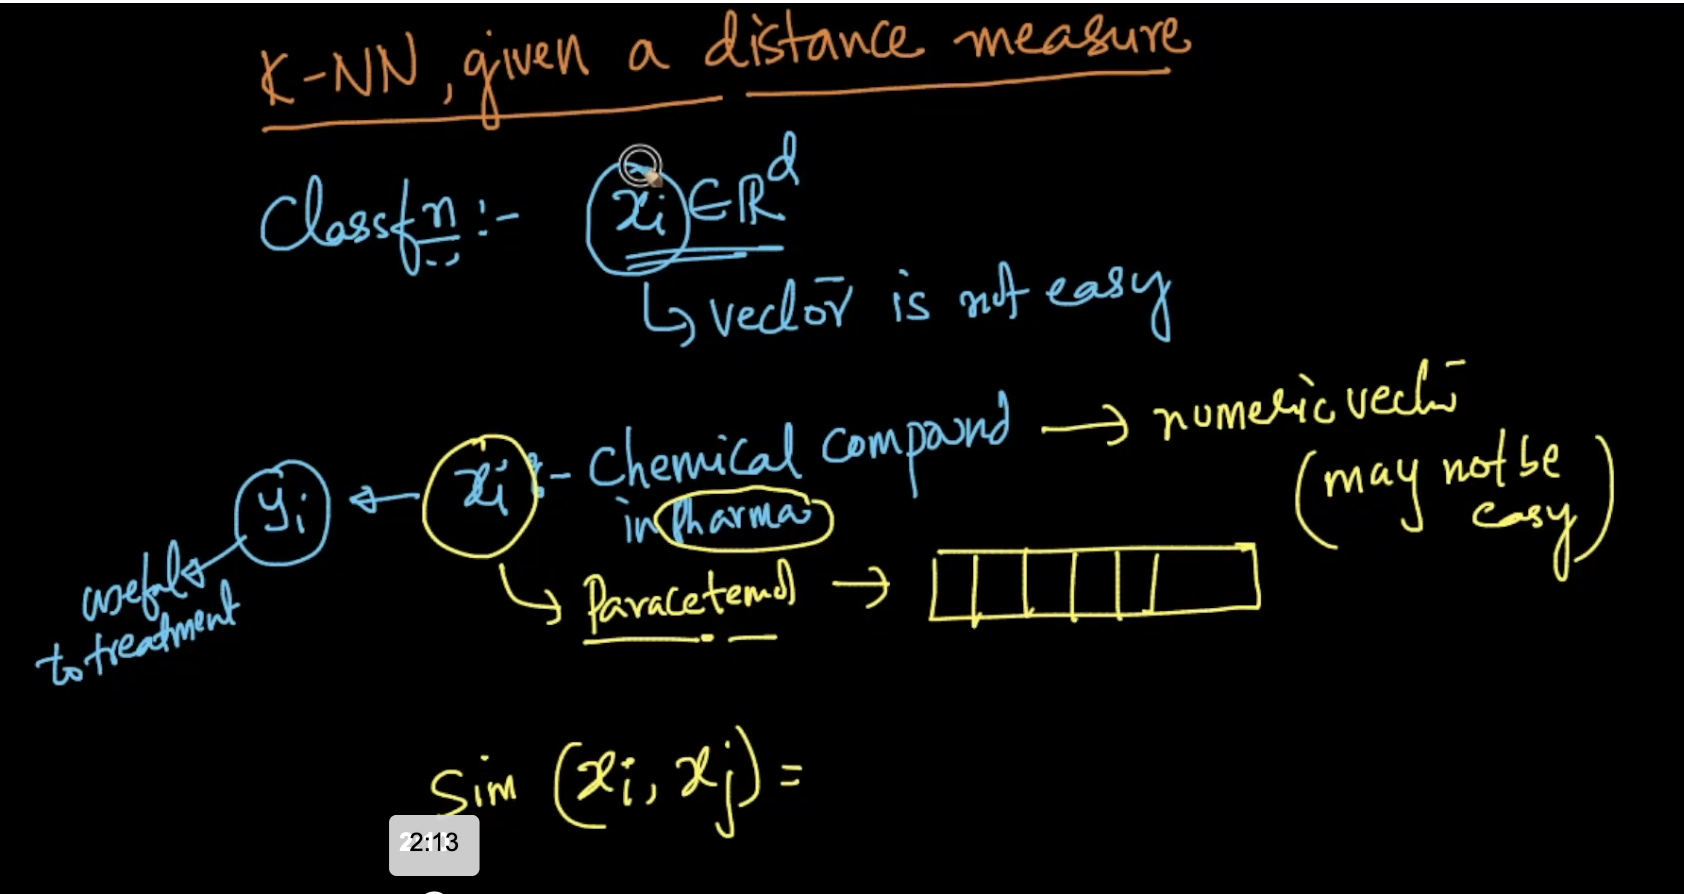 K-NN, given a distance measure
Classfn :- xi ∈ ℝ^d
↳ vector is not easy
xi :- Chemical compound → numeric vector
in Pharma
(may not be easy)
yi ←
useful to treatment
↳ Paracetemol →
Sim (xi, xj) =
2:13